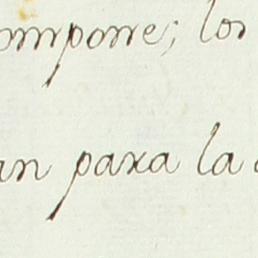 ompone; los
an para la